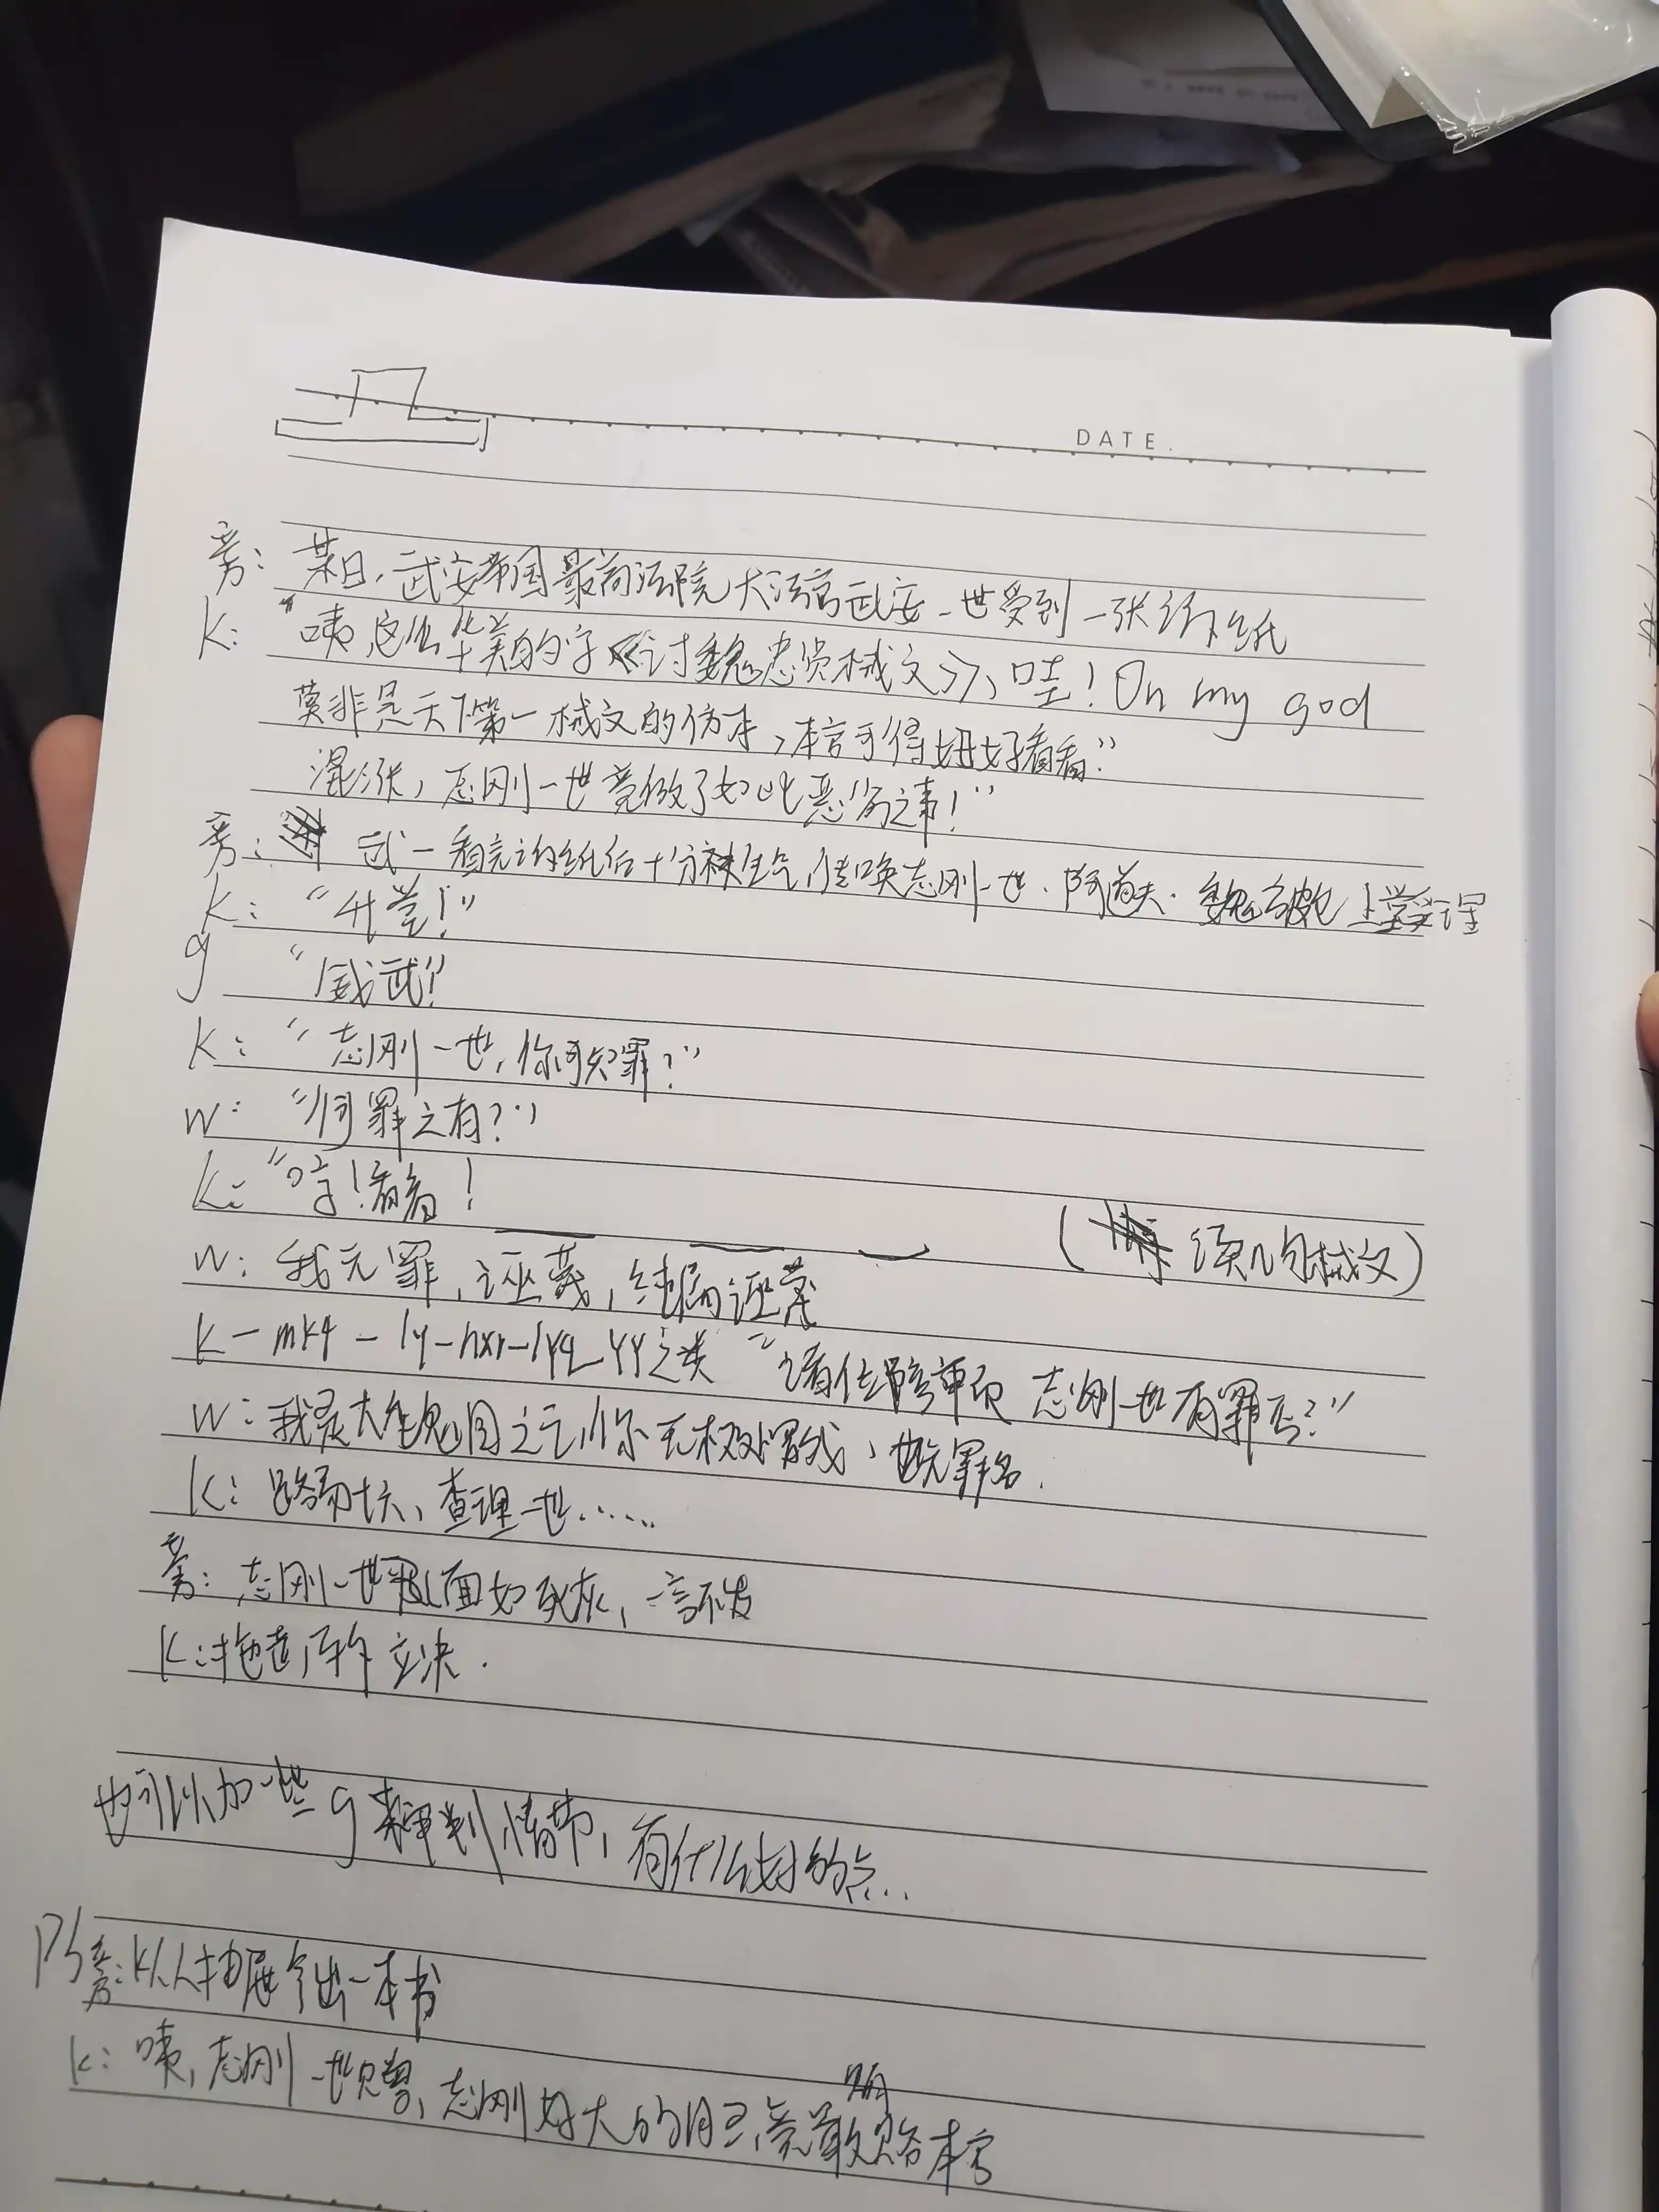 DATE.
旁: 某日,武安帝国最高法院大法官武安一世受到一张诉纸
K: "咦 这么华美的字《讨魏忠贤械文》,哇! On my god
莫非是天下第一械文的仿本,本官可得好好看看"
混涨,志刚一世竟做了如此恶劣之事!"
旁: 武一看完诉纸后十分生气,传唤志刚一世·阿道夫·魏 上堂受理
K: "升堂!"
g "威武!"
K: "志刚一世,你可知罪?"
W: "何罪之有?"
K: "哼!看看!
(读几句械文)
W: 我无罪,诬蔑,纯属诬蔑
K - mkq - ly - hxr - lyq - yy之类 "请任陪审员 志刚一世有罪否?"
W: 我是大魏国之王,你无权处罚我,也无罪名.
K: 路易十六,查理一世……
旁: 志刚一世 面如死灰,一言不发
K: 拖走,斩立决.
也可以加一些g来审判情节,有什么好的点..
PS 旁: K从抽屉拿出一本书
K: 咦,志刚一世赠,志刚好大的胆子,竟敢贿赂本官